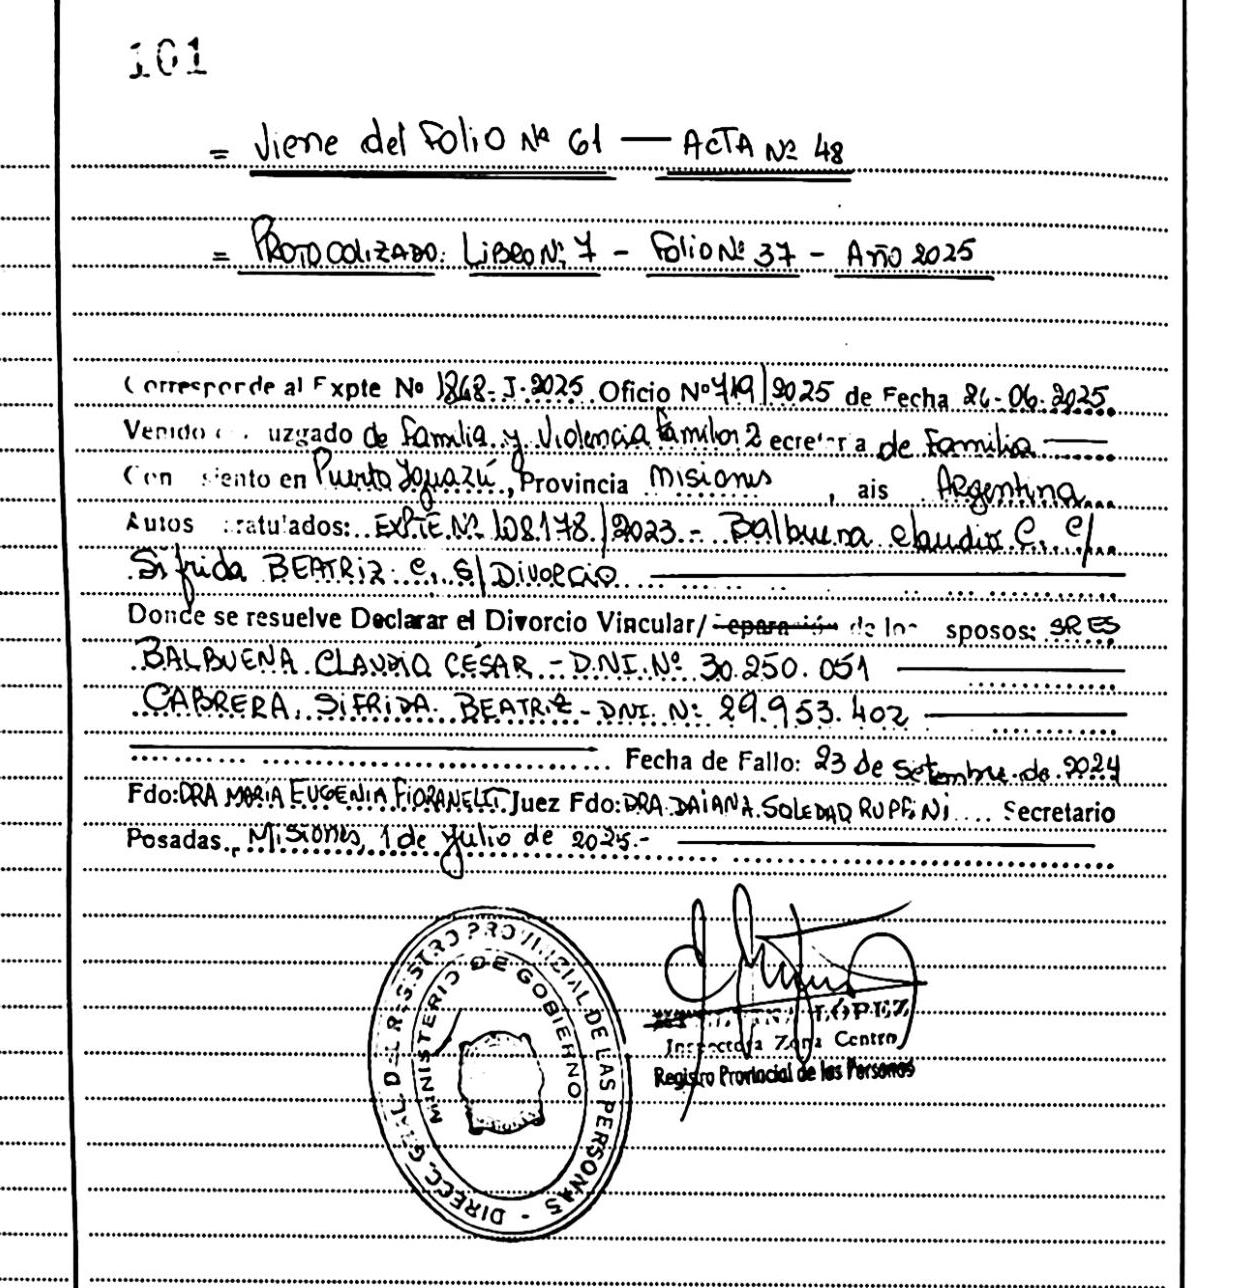 101
= Viene del Folio Nº 61 — ACTA Nº 48
= PROTOCOLIZADO: LIBRO Nº 7 - Folio Nº 37 - AÑO 2025
Corresponde al Expte Nº 1868-J-2025 Oficio Nº 719/2025 de Fecha 26-06-2025
Venido uzgado de Familia y Violencia Familiar 2 ecretaria de Familia
Con siento en Puerto Iguazú, Provincia Misiones, ais Argentina
Autos aratulados: EXPTE Nº 108178/2023.- Balbuena Claudio C. C/
Sifrida BEATRIZ C. S/ DIVORCIO
Donde se resuelve Declarar el Divorcio Vincular/ eparación de los sposos: SRES
BALBUENA CLAUDIO CÉSAR - D.N.I. Nº 30.250.051
CABRERA, SIFRIDA BEATRIZ - DNI. Nº 29.953.402
Fecha de Fallo: 23 de Setembre de 2024
Fdo: DRA MARÍA EUGENIA FIORANELLI Juez Fdo: DRA. DAIANA SOLEDAD RUFFINI Secretario
Posadas, Misiones, 1 de Julio de 2025.-
DIRECC. GRAL. DEL REGISTRO PROVINCIAL DE LAS PERSONAS -
MINISTERIO DE GOBIERNO
LÓPEZ
Inspectora Zona Centro
Registro Provincial de las Personas